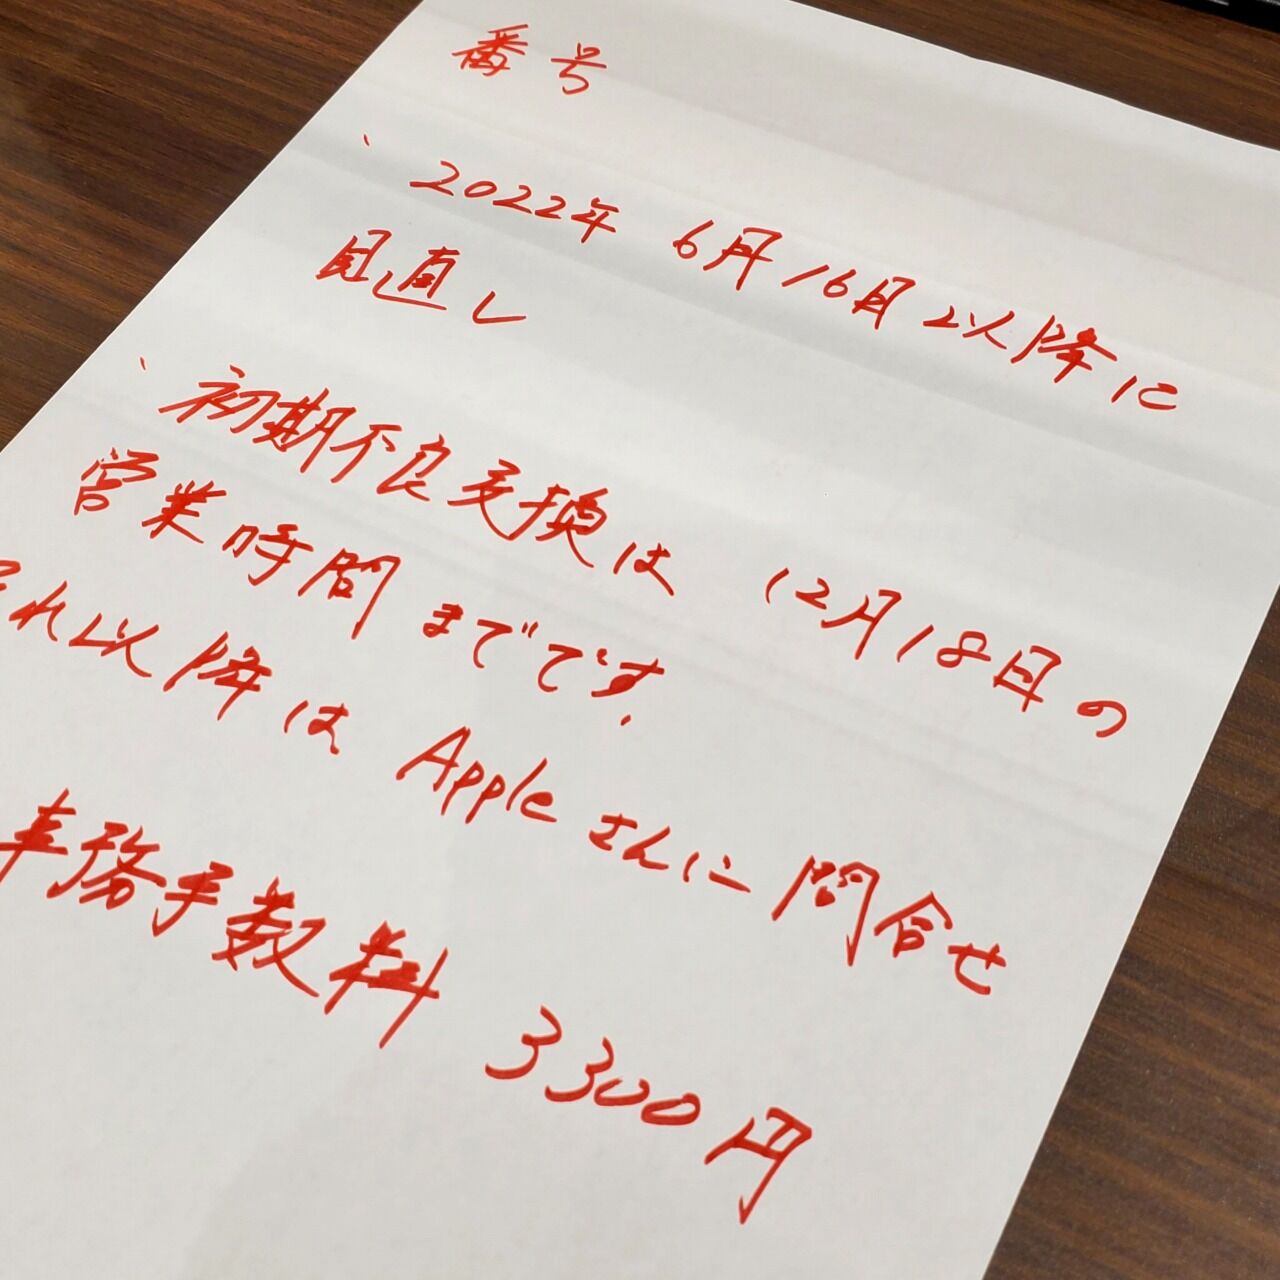 番号
、2022年 6月16日以降に
見直し
、初期不良交換は 12月18日の
営業時間までです.
それ以降は Appleさんに問合せ
事務手数料 3300円